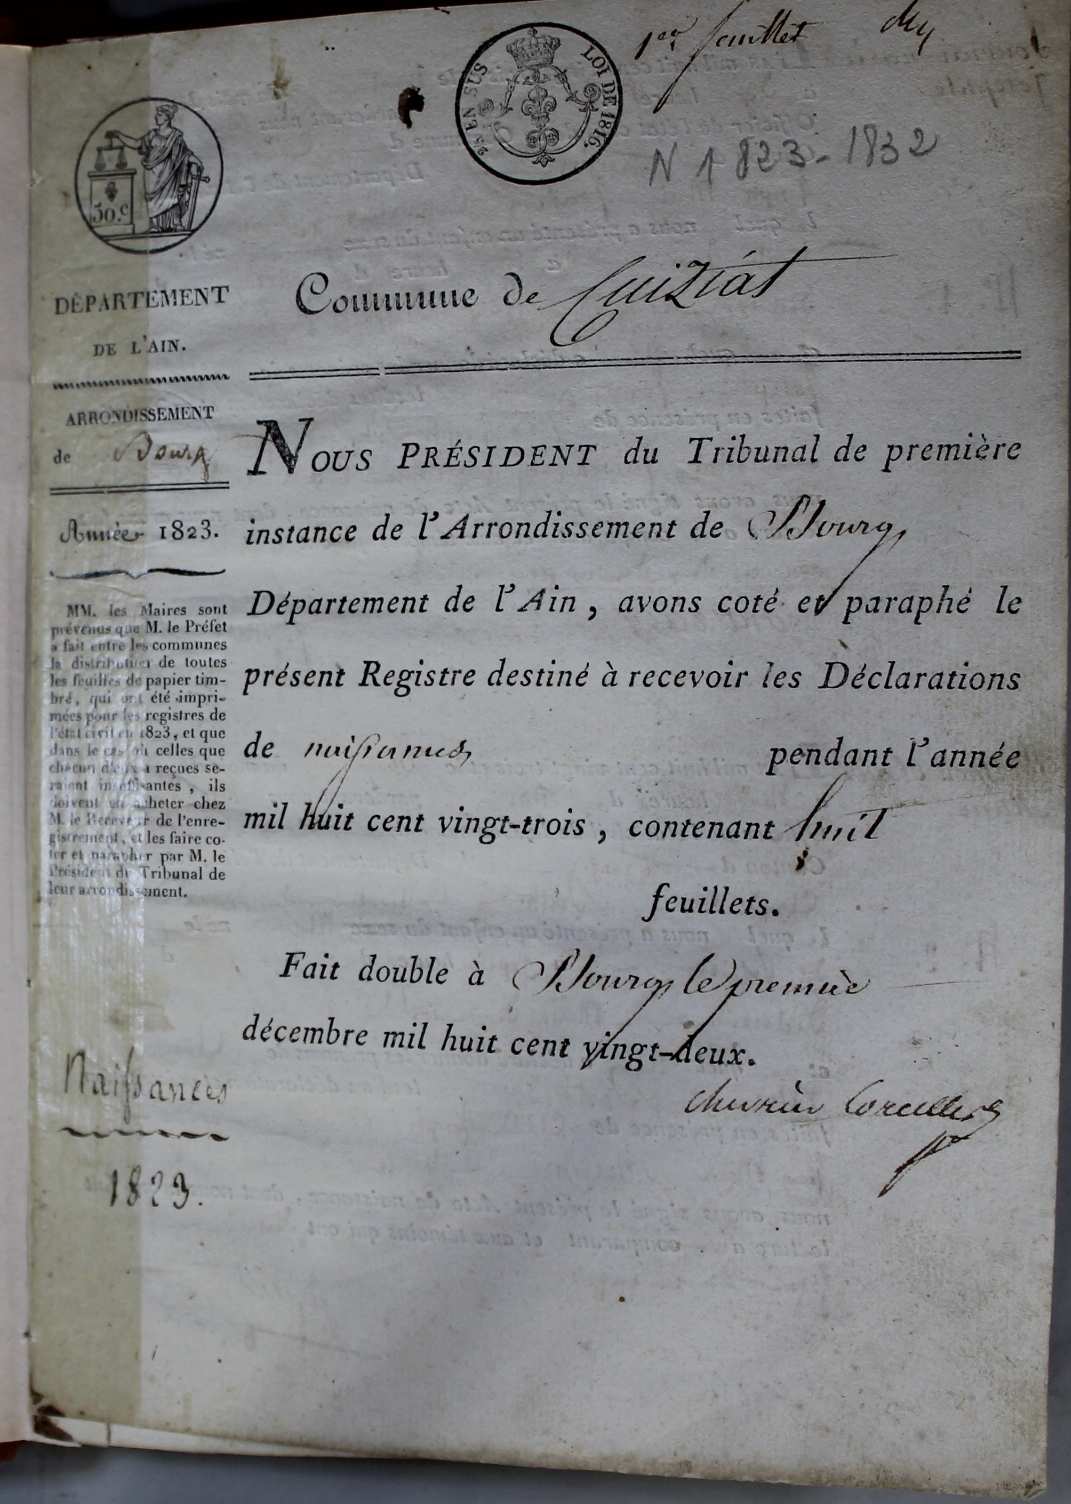 1er feuillet
EN SUS LOI DE 1816.
50.c
N 1823-1832
DÉPARTEMENT
DE L'AIN.
Commune de Cuiziat
ARRONDISSEMENT
de Bourg
Année 1823.
MM. les Maires sont
prévenus que M. le Préfet
a fait entre les communes
la distribution de toutes
les feuilles de papier tim-
bré, qui ont été impri-
mées pour les registres de
l'état civil en 1823, et que
dans le cas où celles que
chacun d'eux a reçues se-
raient insuffisantes, ils
doivent en acheter chez
M. le Receveur de l'enre-
gistrement, et les faire co-
ter et parapher par M. le
Président du Tribunal de
leur arrondissement.
Naissances
1823.
NOUS PRÉSIDENT du Tribunal de première
instance de l'Arrondissement de Bourg
Département de l'Ain, avons coté et paraphé le
présent Registre destiné à recevoir les Déclarations
de naissances pendant l'année
mil huit cent vingt-trois, contenant huit
feuillets.
Fait double à Bourg le premier
décembre mil huit cent vingt-deux.